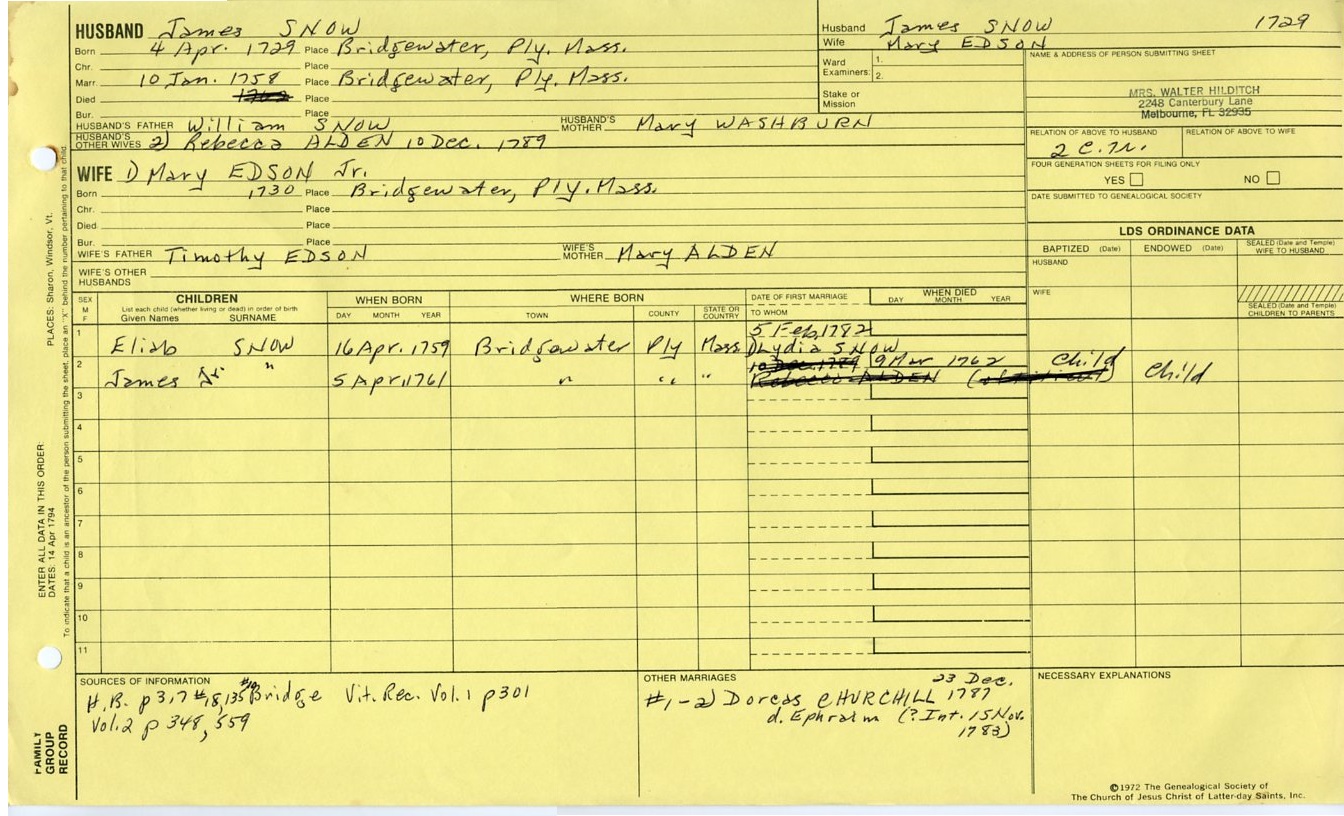 HUSBAND James SNOW
Born 4 Apr. 1729 Place Bridgewater, Ply. Mass.
Chr. Place
Marr. 10 Jan. 1758 Place Bridgewater, Ply. Mass.
Died Place
Bur. Place
HUSBAND'S FATHER William SNOW HUSBAND'S MOTHER Mary WASHBURN
HUSBAND'S OTHER WIVES 2) Rebecca ALDEN 10 Dec. 1789
WIFE 1) Mary EDSON Jr.
Born 1730 Place Bridgewater, Ply. Mass.
Chr. Place
Died Place
Bur. Place
WIFE'S FATHER Timothy EDSON WIFE'S MOTHER Mary ALDEN
WIFE'S OTHER HUSBANDS
Husband James SNOW 1729
Wife Mary EDSON
Ward Examiners: 1.
2.
Stake or Mission
NAME & ADDRESS OF PERSON SUBMITTING SHEET
MRS. WALTER HILDITCH
2248 Canterbury Lane
Melbourne, FL 32935
RELATION OF ABOVE TO HUSBAND RELATION OF ABOVE TO WIFE
FOUR GENERATION SHEETS FOR FILING ONLY
YES NO
DATE SUBMITTED TO GENEALOGICAL SOCIETY
LDS ORDINANCE DATA
BAPTIZED (Date) ENDOWED (Date) SEALED (Date and Temple) WIFE TO HUSBAND
HUSBAND
WIFE
SEALED (Date and Temple) CHILDREN TO PARENTS
SEX M F
CHILDREN
List each child (whether living or dead) in order of birth
Given Names SURNAME
WHEN BORN
DAY MONTH YEAR
WHERE BORN
TOWN COUNTY STATE OR COUNTRY
DATE OF FIRST MARRIAGE
TO WHOM
WHEN DIED
DAY MONTH YEAR
1 Eliab SNOW 16 Apr. 1759 Bridgewater Ply Mass. 5 Feb, 1782
1) Lydia SNOW
2 James Jr. " 5 Apr, 1761 " " " 10 Dec. 1789 9 Mar 1762 Child Child
Rebecca ALDEN
3
4
5
6
7
8
9
10
11
SOURCES OF INFORMATION
H.B. p 3,7 #18,135 #19 Bridge Vit. Rec. Vol. 1 p 301
Vol. 2 p 348, 559
OTHER MARRIAGES
23 Dec.
#1-2) Dorcas CHURCHILL 1787
d. Ephraim (? Int. 15 Nov.
1783)
NECESSARY EXPLANATIONS
©1972 The Genealogical Society of
The Church of Jesus Christ of Latter-day Saints, Inc.
FAMILY GROUP RECORD
ENTER ALL DATA IN THIS ORDER:
DATES: 14 Apr 1794
PLACES: Sharon, Windsor, Vt.
To indicate that a child is an ancestor of the person submitting the sheet, place an "X" behind the number pertaining to that child.